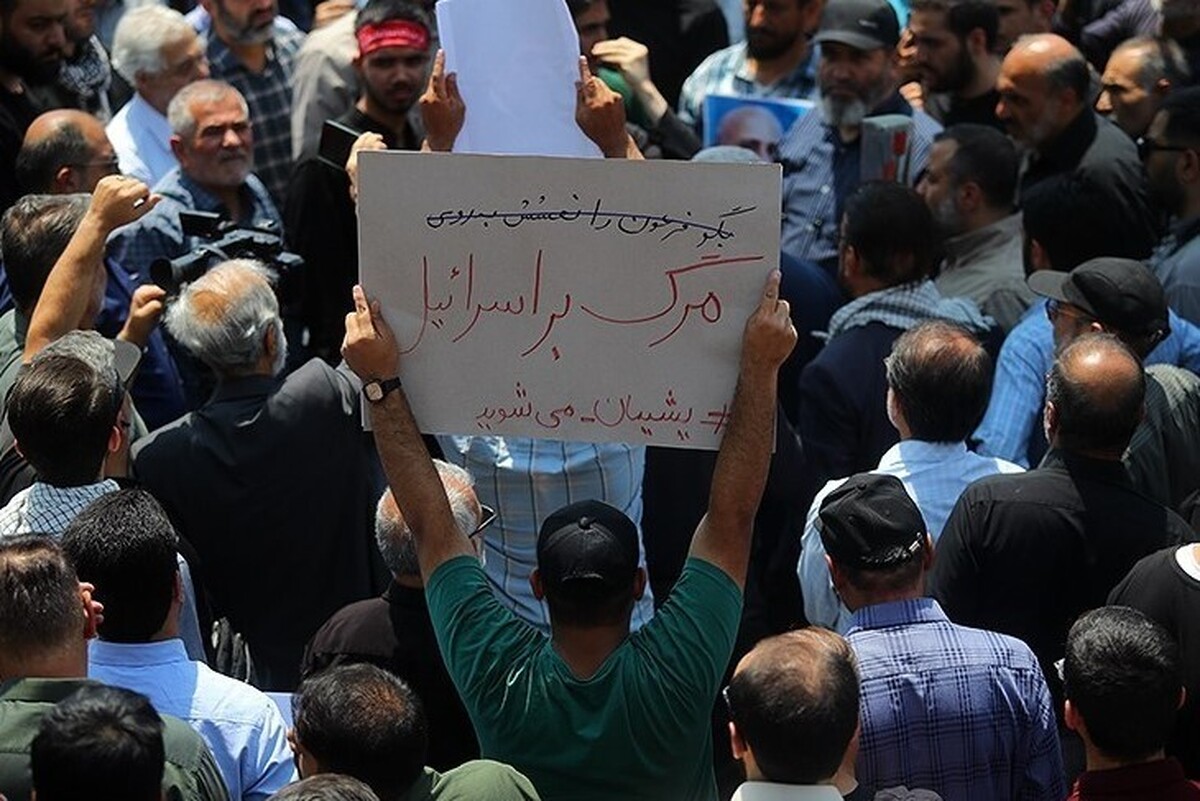 بگو فرعون را نعشش
مرگ بر اسرائیل
# پشیمان_می شوید